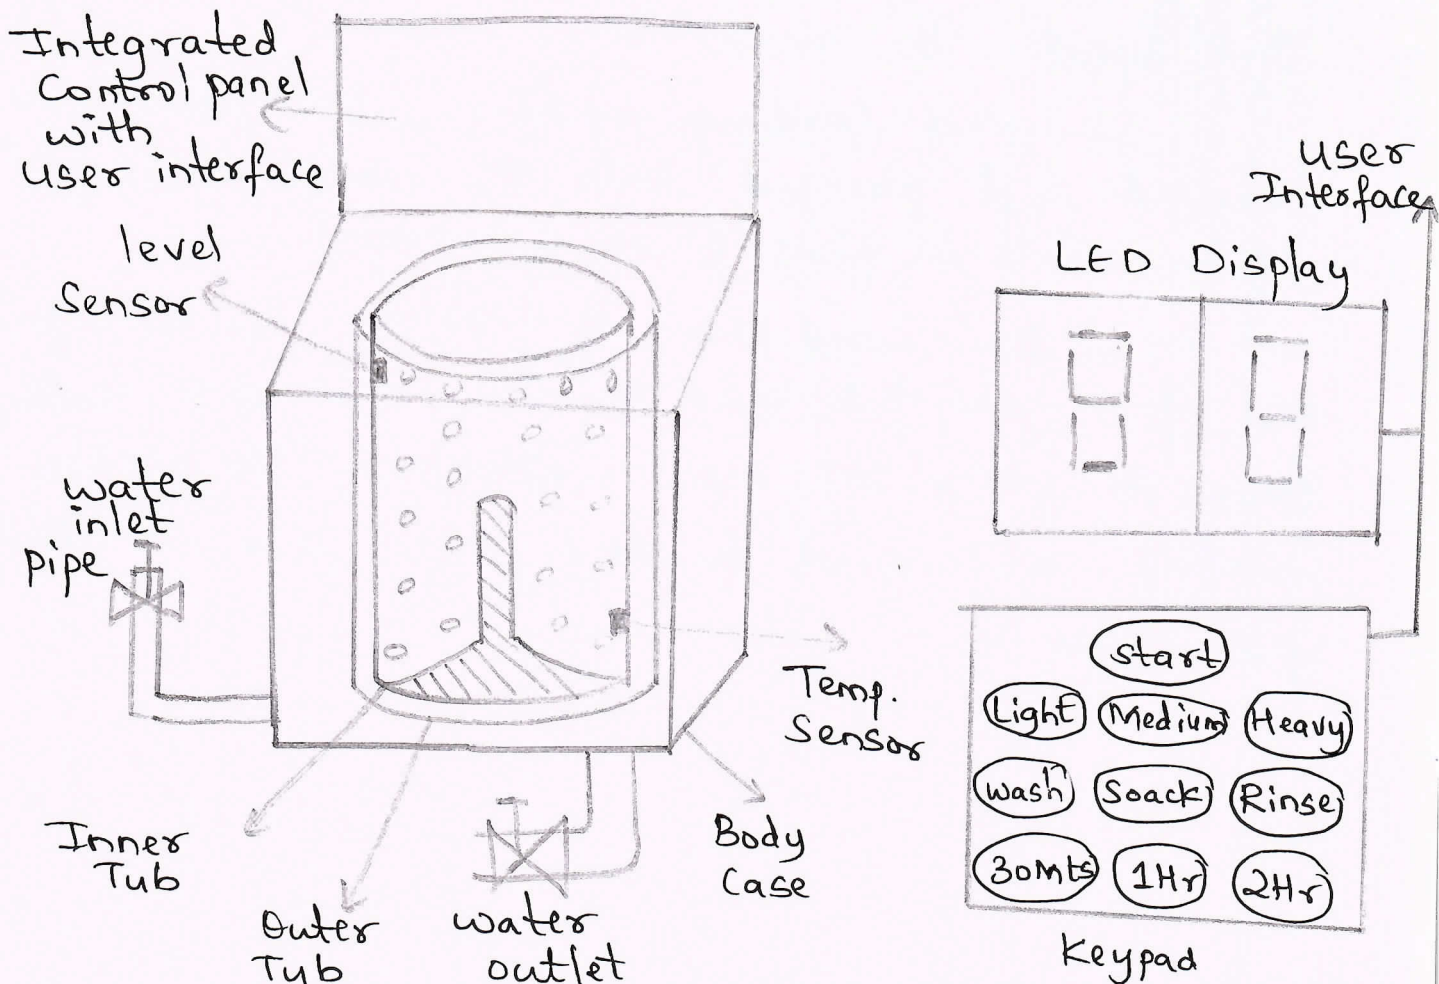 Integrated
Control panel
with
user interface
level
Sensor
water
inlet
pipe
Inner
Tub
Outer
Tub
water
outlet
Body
Case
Temp.
Sensor
user
Interface
LED Display
start
Light Medium Heavy
wash Soack Rinse
30Mts 1Hr 2Hr
Keypad